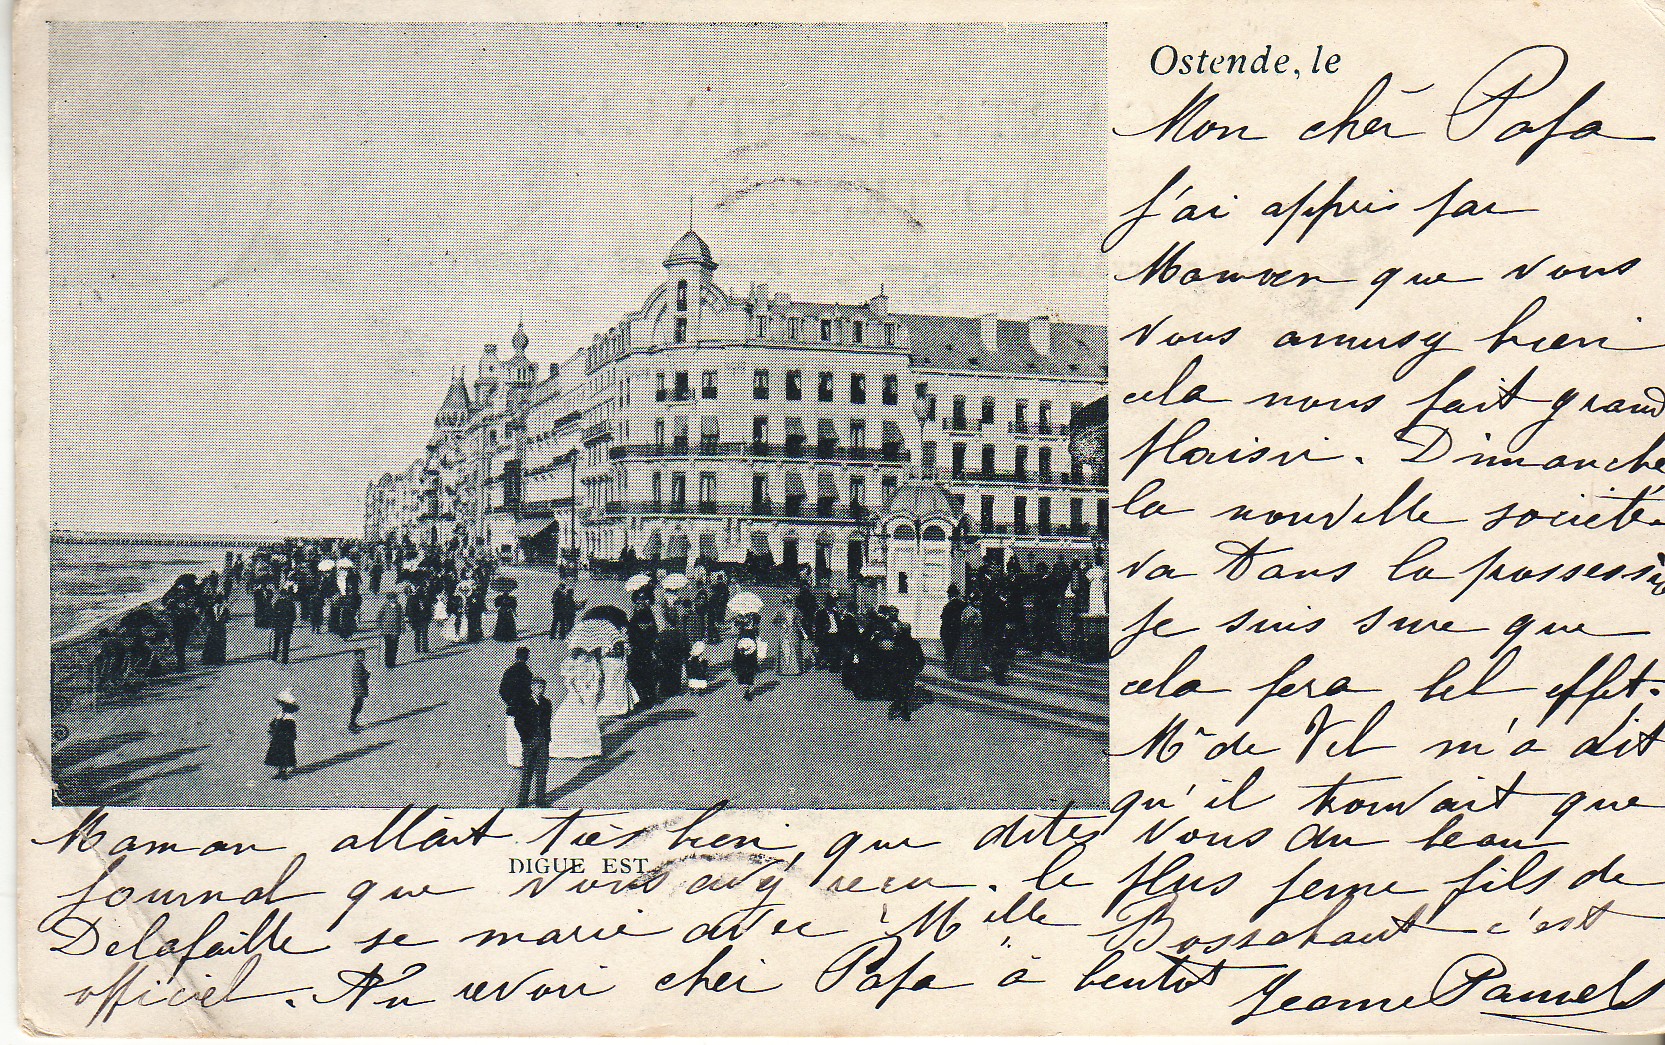 Ostende, le
Mon cher Papa
J'ai appris par
Maman que vous
vous amusez bien
cela nous fait grand
plaisir. Dimanche
la nouvelle societé
va dans la possession
je suis sure que
cela fera bel effet.
Mr de Vil m'a dit
qu'il trouvait que
Maman allait très bien, que dites vous du beau
DIGUE EST
journal que vous avez recu. le plus jeune fils de
Delafaille se marie avec Melle Bosschaert c'est
officiel. Au revoir cher Papa à bientot Jeanne Pauwels